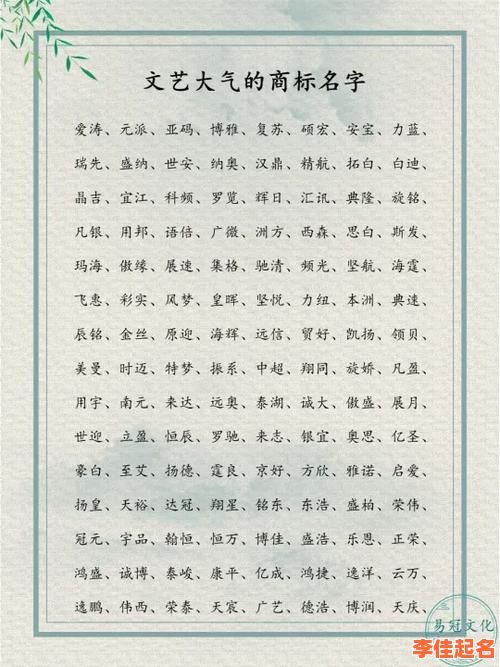 文艺大气的商标名字
爱涛、元派、亚码、博雅、复苏、硕宏、安宝、力蓝、
瑞先、盛纳、世安、纳奥、汉鼎、精航、拓白、白迪、
晶吉、宜江、科频、罗览、辉日、汇讯、典隆、旋铭、
凡银、用邦、语倍、广微、洲方、西森、思白、斯发、
玛海、傲缘、展速、集格、驰清、频光、坚航、海霆、
飞惠、彩实、风梦、皇晖、坚悦、力纽、本洲、典速、
辰铭、金丝、原迎、海辉、远信、贸好、凯扬、领贝、
美曼、时迈、特梦、振系、中超、翔同、旋娇、凡盈、
用宇、南元、来达、远奥、泰湖、诚大、傲盛、展月、
世迎、立盈、恒辰、罗驰、来志、银宜、奥思、亿圣、
豪白、至艾、扬德、霆良、京好、方欣、雅诺、启爱、
扬皇、天裕、达冠、翔星、铭东、东浩、盛柏、荣伟、
冠元、宇品、翰恒、恒万、博佳、盛浩、乐恩、正荣、
鸿盛、诚博、泰峻、康平、亿成、鸿捷、逸洋、云万、
逸鹏、伟西、荣泰、天宸、广艺、德浩、博润、天庆、
易冠文化
李佳起名